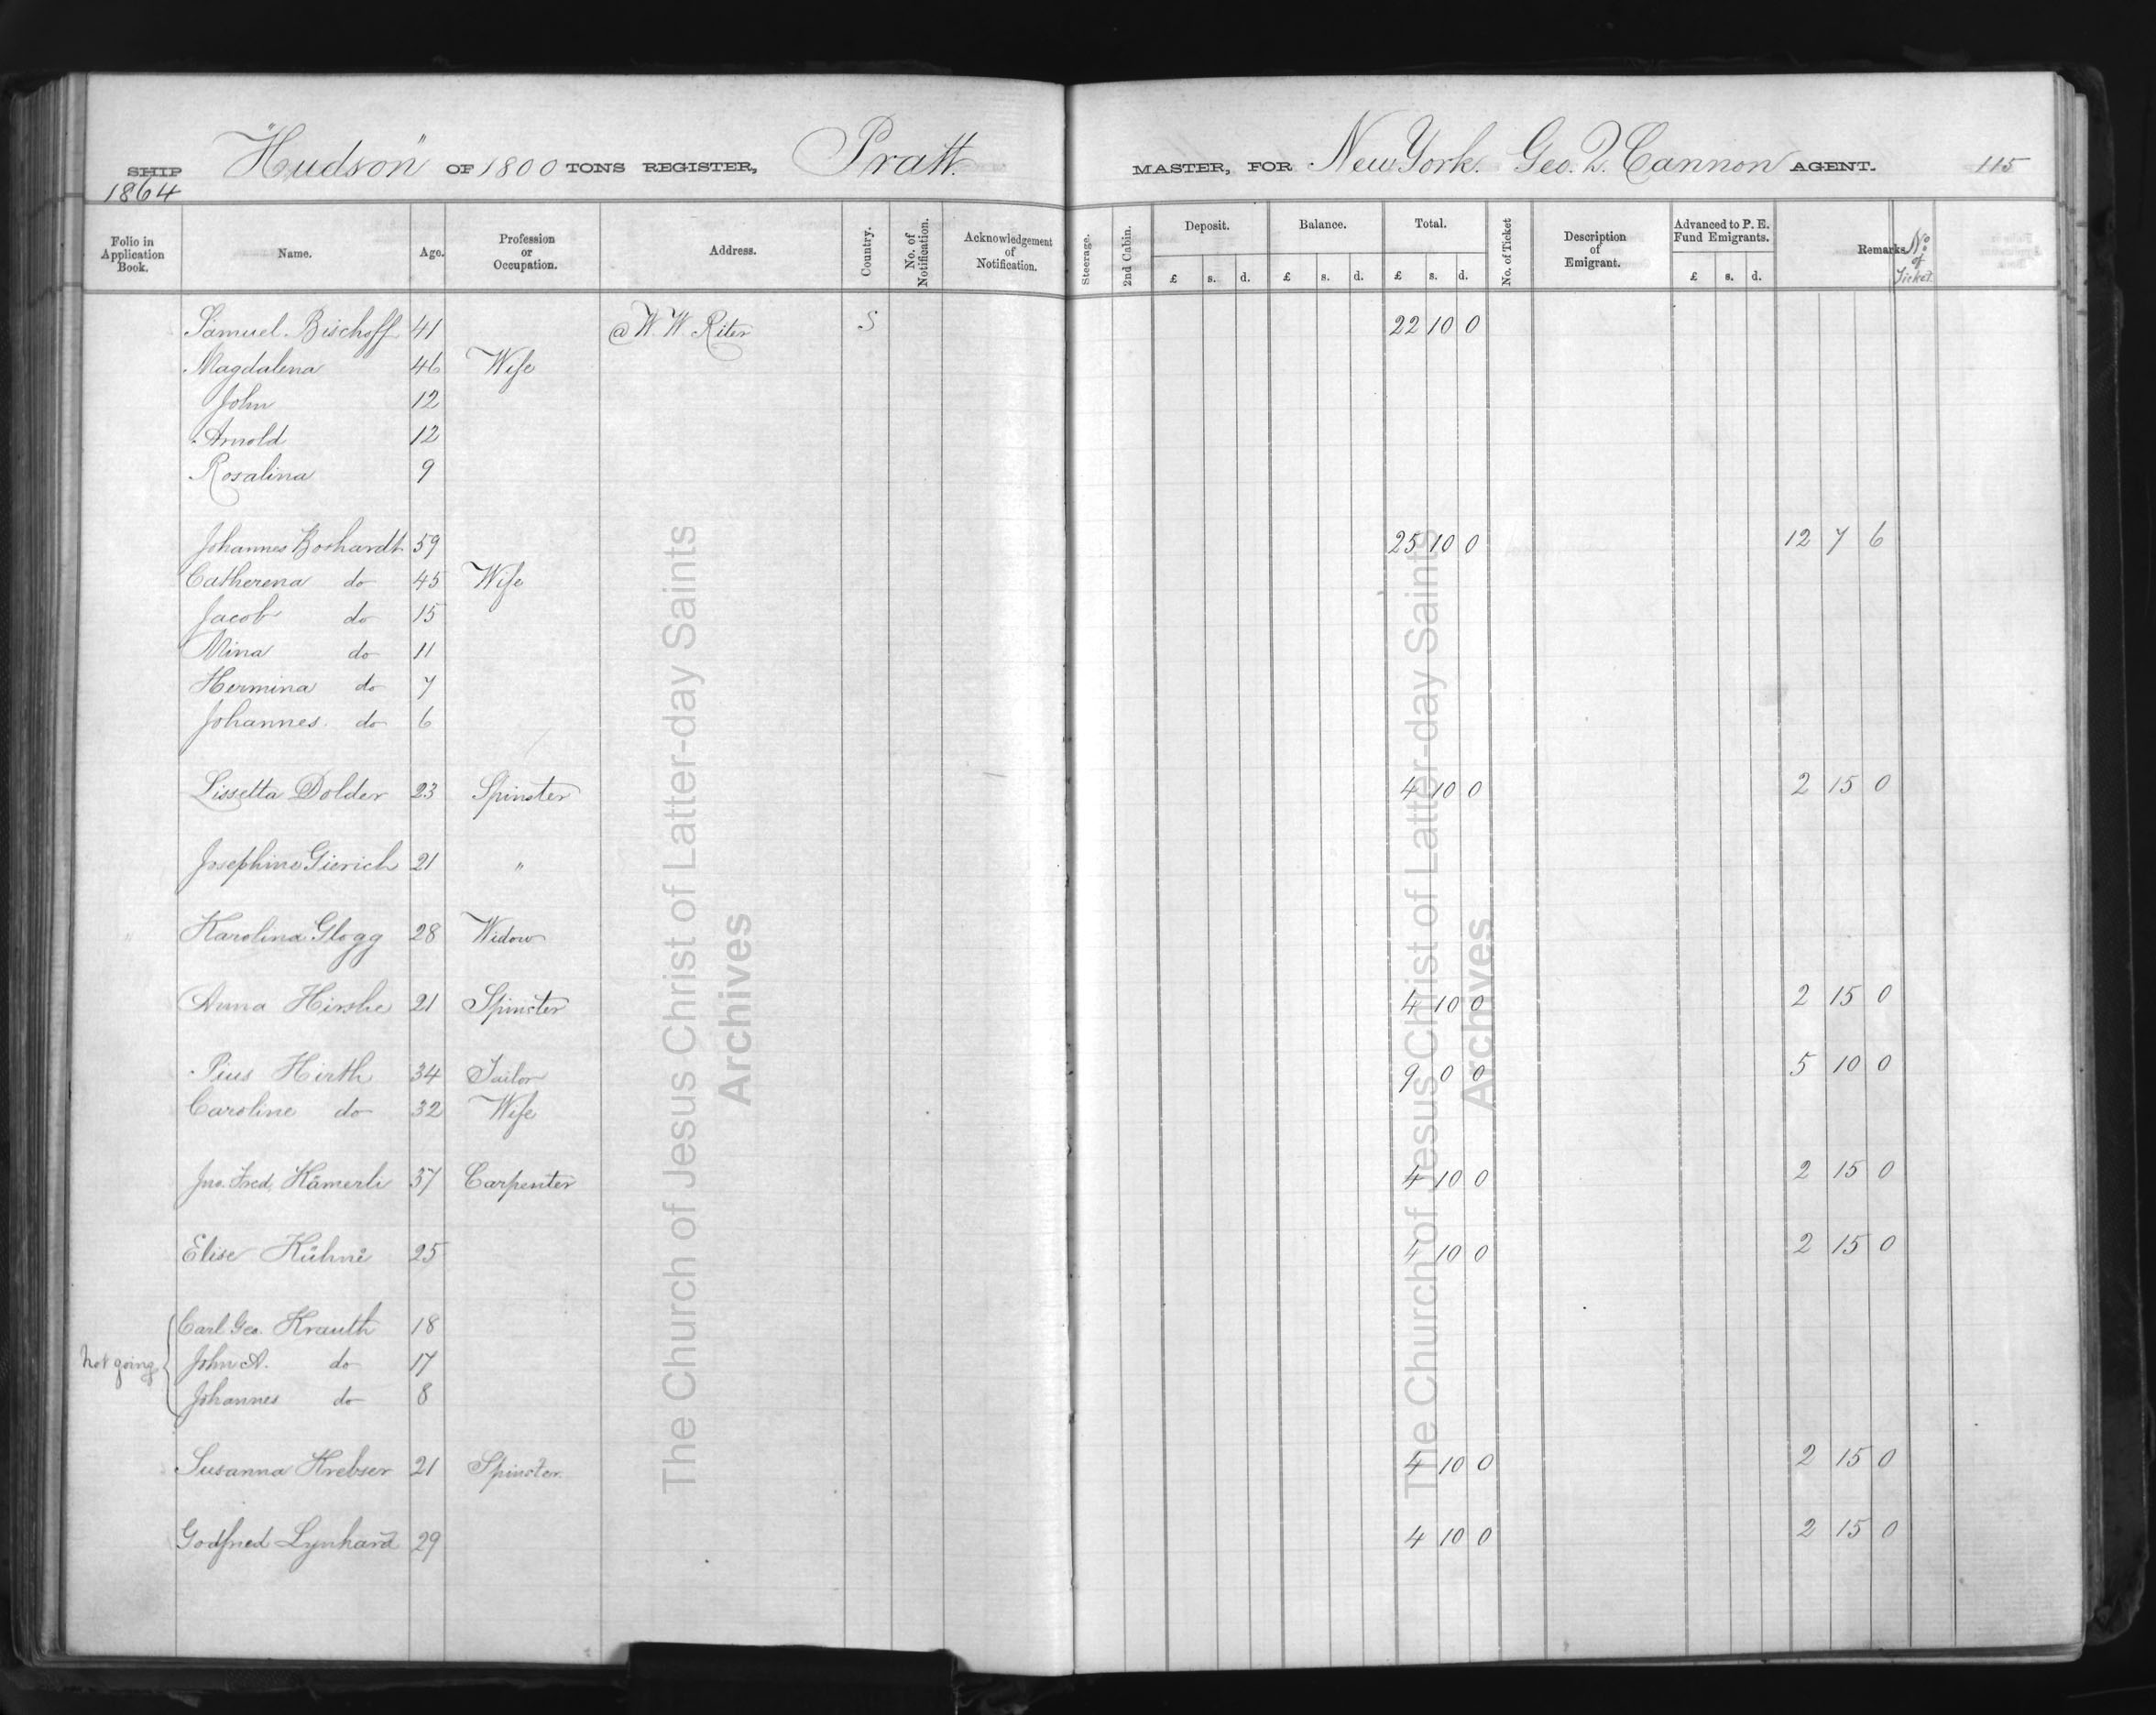 SHIP "Hudson" OF 1800 TONS REGISTER, Pratt. MASTER, FOR New York. Geo. Q. Cannon AGENT. 115
1864
Folio in Application Book. Name. Age. Profession or Occupation. Address. Country. No. of Notification. Acknowledgement of Notification. Steerage. 2nd Cabin. Deposit. £ s. d. Balance. £ s. d. Total. £ s. d. No. of Ticket Description of Emigrant. Advanced to P. E. Fund Emigrants. £ s. d. Remarks No. of Ticket
Samuel Bischoff 41 @ W. W. Riter S 22 10 0
Magdalena 46 Wife
John 12
Arnold 12
Rosalina 9
Johannes Boshardt 59 25 10 0 12 7 6
Catherena do 45 Wife
Jacob do 15
Mina do 11
Hermina do 7
Johannes. do 6
Lissetta Dolder 23 Spinster 4 10 0 2 15 0
Josephine Gierich 21 "
Karolina Glogg 28 Widow
Anna Hirshe 21 Spinster 4 10 0 2 15 0
Pius Hirth 34 Tailor 9 0 0 5 10 0
Caroline do 32 Wife
Jno. Fred. Kämerli 37 Carpenter 4 10 0 2 15 0
Elise Kühni 25 4 10 0 2 15 0
Carl Geo. Krauth 18
not going John A. do 17
Johannes do 8
Susanna Krebser 21 Spinster. 4 10 0 2 15 0
Godfred Lynhard 29 4 10 0 2 15 0
The Church of Jesus Christ of Latter-day Saints
Archives
The Church of Jesus Christ of Latter-day Saints
Archives